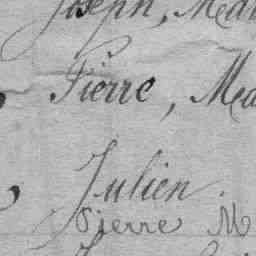 Joseph, Mar
Pierre, Mea
Julien.
Pierre M